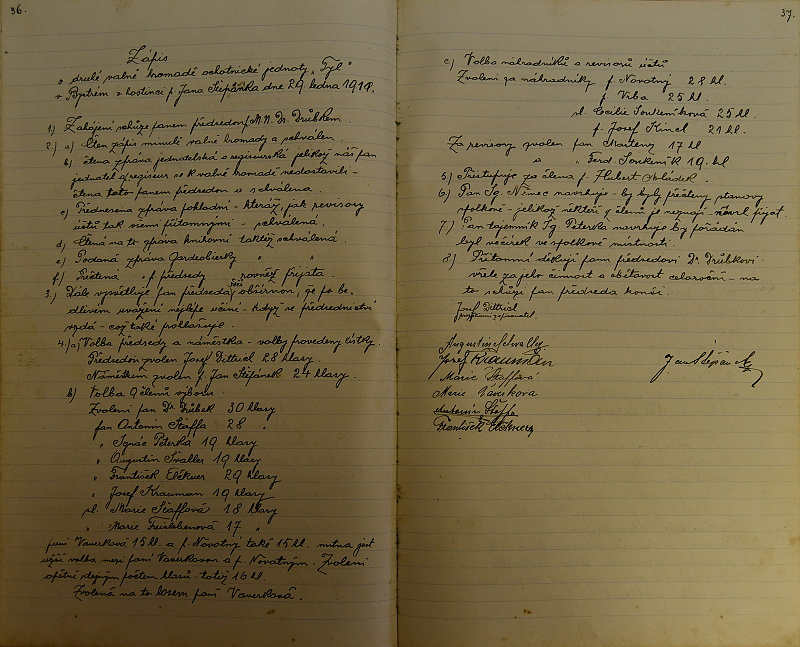 36.
Zápis
o druhé valné hromadě ochotnické jednoty „Tyl"
v Bystrém v hostinci p. Jana Štěpánka dne 29. ledna 1911.
1) Zahájení schůze panem předsedou p. M. U. Dr. Drůbkem.
2.) a) Čten zápis minulé valné hromady a schválen.
b) čtena zpráva jednatelská a regiseurská jelikož náš pan
jednatel a regiseur se k valné hromadě nedostavili -
čtena tato panem předsedou a schválena.
c) Přednesena zpráva pokladní - kteráž, jak revisory
účtů tak všemi přítomnými - schválená.
d) Čtená na to zpráva knihovní taktéž schválená.
e) Podaná zpráva Garderobierky
f) Přečtená " p. předsedy rovněž přijata.
3.) Dále vysvětluje pan předseda obšírnou, že po be-
dlivém uvážení nejlépe učiní - když se předsednictví
vzdá - což také prohlašuje.
4.) a) Volba předsedy a náměstka - volby provedeny lístky.
Předsedou zvolen Josef Dittrich 28 hlasy.
Náměstkem zvolen p. Jan Štěpánek 24 hlasy.
b) volba 9 členů výboru.
Zvoleni pan Dr. Drůbek 30 hlasy
pan Antonín Štaffa 28 "
" Ignác Peterka 19 hlasy
" Augustin Švaller 19 hlasy
" František Elčkner 29 hlasy
" Josef Krauman 19 hlasy
sl. Marie Štaffová 18 hlasy
" Marie Freislebenová 17 "
paní Vaverková 15 hl. a p. Novotný také 15 hl. nutna jest
užší volba mezi paní Vaverkovou a p. Novotným. Zvoleni
opětně stejným počtem hlasů - totiž 16 hl.
Zvolená na to losem paní Vaverková.
37.
c) Volba náhradníků a revisorů účtů
Zvoleni za náhradníky p. Novotný 28 hl.
p. Vrba 25 hl.
sl. Cecilie Soukeníková 25 hl.
p. Josef Kincl 21 hl.
Za revisory zvolen pan 17 hl
a " Ferd. Soukeník 19. hl
5) Přistupuje za člena p. Hubert
6) Pan Ig. Němec navrhuje - by byly přečteny stanovy
spolkové - jelikož někteří z členů je neznají - návrh přijat.
7) Pan tajemník Ig. Peterka navrhuje by pořádán
byl večírek ve spolkové místnosti.
8) Přítomní děkují panu předsedovi Dr. Drůbkovi
vřele za jeho činnost a obětavost celoroční - na
to schůzi pan předseda končí.
Josef Dittrich
Augustin Švaller
Josef Krauman
Jan Štěpánek
Marie Štaffová
Marie Vaverkova
Antonín Štaffa
František Elčkner